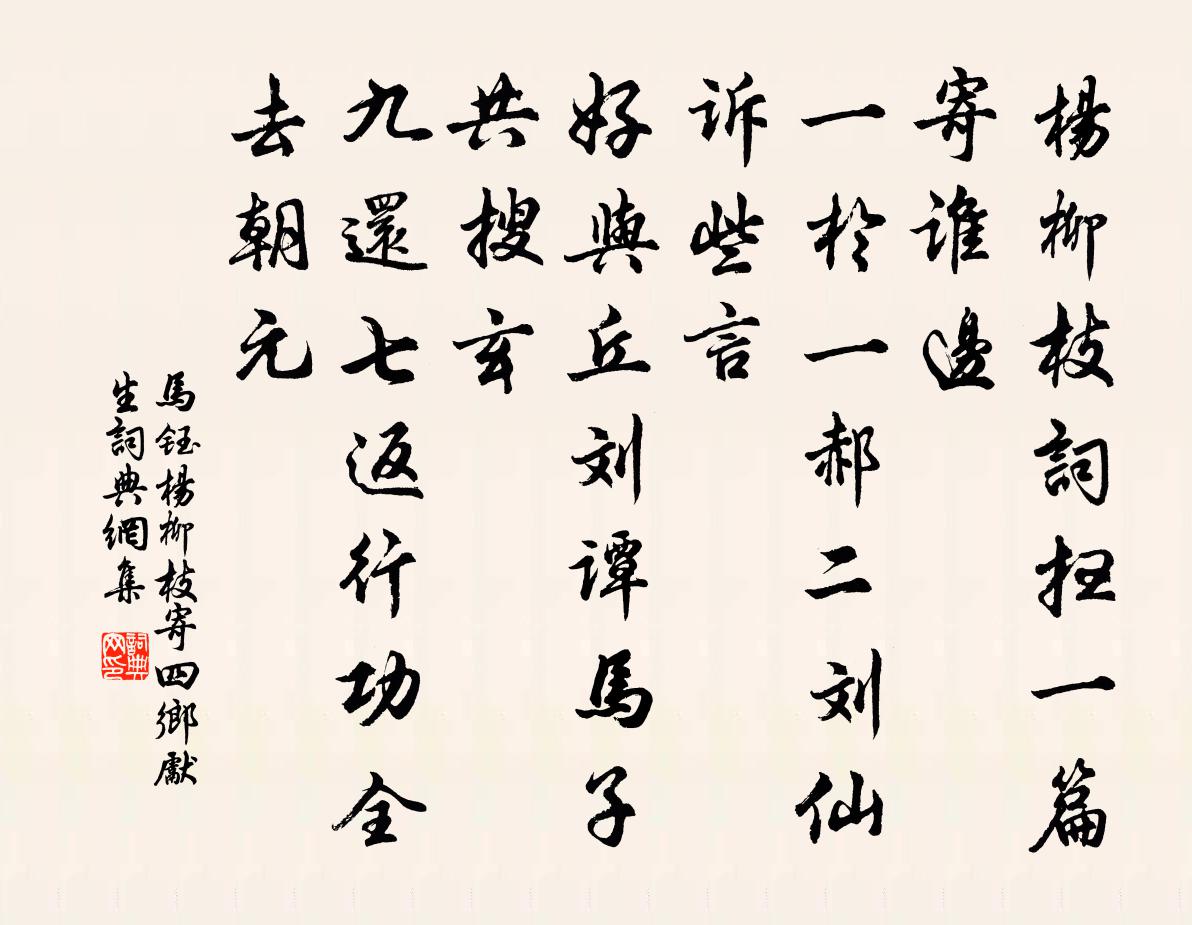 楊柳枝詞抂一篇
寄誰邊
一於一郝二刘仙
诉些言
好與丘刘谭馬子
共搜玄
九還七返行功全
去朝元
馬鈺楊柳枝寄四鄉獻
生詞典網集
詞典
网印